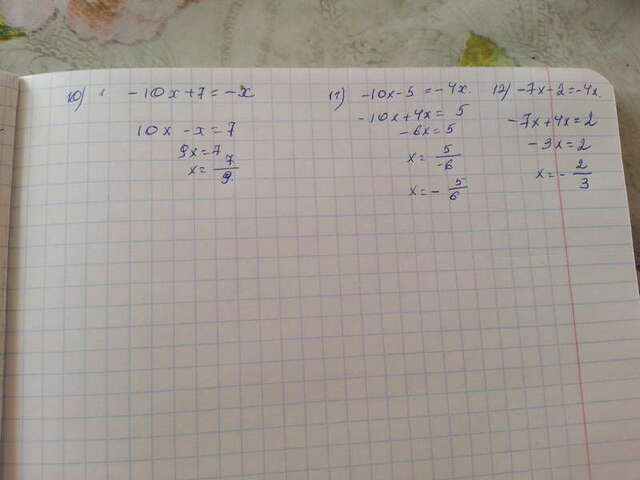 10) -10x+7=-x
10x-x=7
9x=7
x=7/9
11) -10x-5=-4x.
-10x+4x=5
-6x=5
x=5/-6
x=-5/6
12) -7x-2=-4x.
-7x+4x=2
-3x=2
x=-2/3